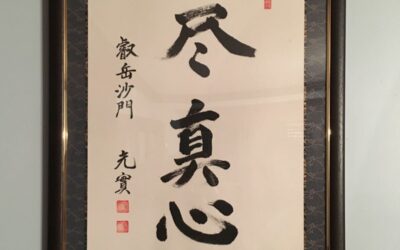 尽真心
叡岳沙門 光實